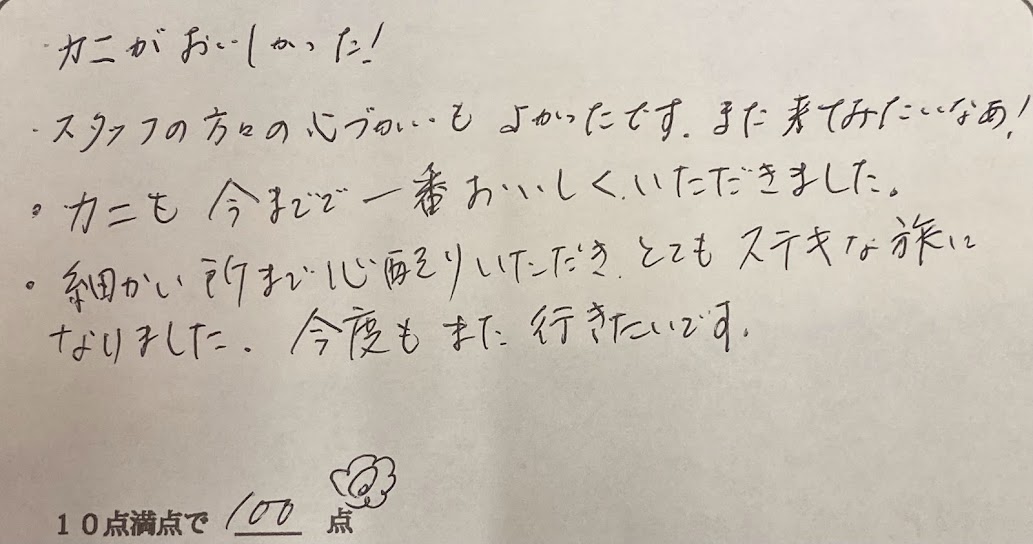 ・カニがおいしかった!
・スタッフの方々の心づかいもよかったです。また来てみたいなあ!
・カニも今までで一番おいしく、いただきました。
・細かい所まで心配りいただき、とてもステキな旅に
なりました。今度もまた行きたいです。
10点満点で 100 点